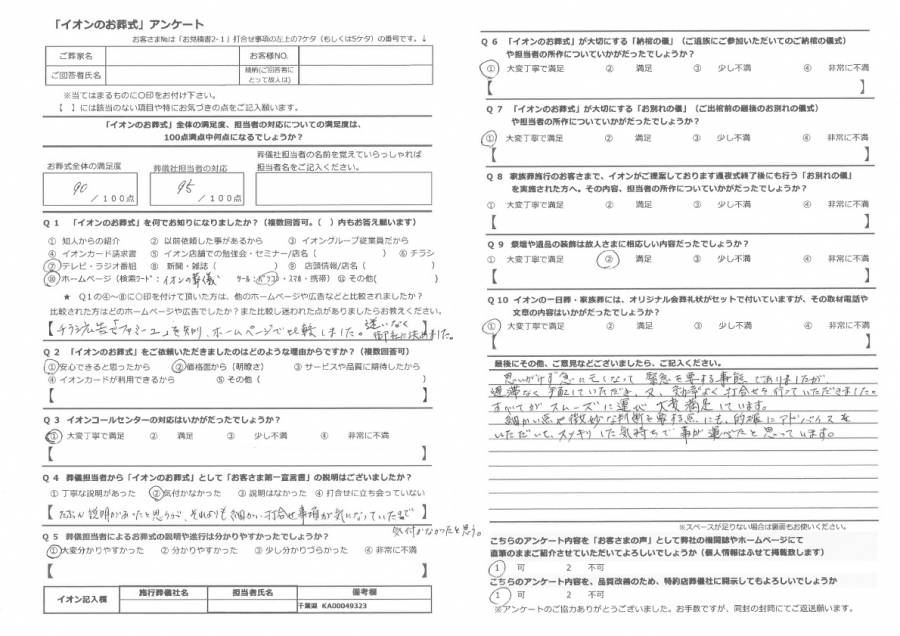 「イオンのお葬式」アンケート
お客さま№は「お見積書2-1」打合せ事項の左上の7ケタ（もしくは5ケタ）の番号です。↓
ご葬家名
お客様NO.
ご回答者氏名
続柄(ご回答者に
とって故人は)
※当てはまるものに○印をお付け下さい。
【　】には該当のない項目や特にお気づきの点をご記入願います。
「イオンのお葬式」全体の満足度、担当者の対応についての満足度は、
100点満点中何点になるでしょうか？
お葬式全体の満足度
90
／100点
葬儀社担当者の対応
95
／100点
葬儀社担当者の名前を覚えていらっしゃれば
担当者名をご記入ください。
Q１ 「イオンのお葬式」を何でお知りになりましたか？（複数回答可。（　）内もお答え願います）
① 知人からの紹介　② 以前依頼した事があるから　③ イオングループ従業員だから
④ イオンカード請求書　⑤ イオン店舗での勉強会・セミナー/店名（　）⑥ チラシ
⑦ テレビ・ラジオ番組　⑧ 新聞・雑誌（　）⑨ 店頭情報/店名（　）
⑩ ホームページ（検索ワード：イオンの葬儀　ツール：パソコン・スマホ・携帯）⑪ その他(　)
★ Ｑ１の④～⑧に○印を付けて頂いた方は、他のホームページや広告などと比較されましたか？
比較された方はどのホームページや広告でしたか？また比較し迷われた点がありましたらお教えください。
【チラシ広告で「ファミーユ」を知り、ホームページで比較しました。迷いなく
御社に決めました。
Q２ 「イオンのお葬式」をご依頼いただきましたのはどのような理由からですか？（複数回答可）
① 安心できると思ったから　② 価格面から（明瞭さ）　③ サービスや品質に期待したから
④ イオンカードが利用できるから　⑤ その他（　）
Q３ イオンコールセンターの対応はいかがだったでしょうか？
① 大変丁寧で満足　② 満足　③ 少し不満　④ 非常に不満
【　】
Q４ 葬儀担当者から「イオンのお葬式」として「お客さま第一宣言書」の説明はございましたか？
① 丁寧な説明があった　② 気付かなかった　③ 説明はなかった　④ 打合せに立ち会っていない
【たぶん説明があったと思うが、それよりも細かい打合せ事項が気になっていたので
気付かなかったと思う。
Q５ 葬儀担当者によるお葬式の説明や進行は分かりやすかったでしょうか？
① 大変分かりやすかった　② 分かりやすかった　③ 少し分かりづらかった　④ 非常に不満
【　】
イオン記入欄
施行葬儀社名
担当者氏名
備考欄
千葉県 KA00049323
Q６ 「イオンのお葬式」が大切にする「納棺の儀」（ご遺族にご参加いただいてのご納棺の儀式）
や担当者の所作についていかがだったでしょうか？
① 大変丁寧で満足　② 満足　③ 少し不満　④ 非常に不満
【　】
Q７ 「イオンのお葬式」が大切にする「お別れの儀」（ご出棺前の最後のお別れの儀式）
や担当者の所作についていかがだったでしょうか？
① 大変丁寧で満足　② 満足　③ 少し不満　④ 非常に不満
【　】
Q８ 家族葬施行のお客さまで、イオンがご提案しております通夜式終了後にも行う「お別れの儀」
を実施された方へ。その内容、担当者の所作についていかがだったでしょうか？
① 大変丁寧で満足　② 満足　③ 少し不満　④ 非常に不満
【　】
Q９ 祭壇や遺品の装飾は故人さまに相応しい内容だったでしょうか？
① 大変丁寧で満足　② 満足　③ 少し不満　④ 非常に不満
【　】
Q10 イオンの一日葬・家族葬には、オリジナル会葬礼状がセットで付いていますが、その取材電話や
文章の内容はいかがだったでしょうか？
① 大変丁寧で満足　② 満足　③ 少し不満　④ 非常に不満
【　】
最後にその他、ご意見などございましたら、ご記入ください。
思いがけず急に亡くなって 緊急を要する事態でありましたが
遅滞なく手配していただき、又、効率よく打合せを行っていただきました。
すべてがスムーズに運び 大変満足しています。
細かい点や微妙な判断を要する点にも、的確にアドバイスを
いただいて、スッキリした気持ちで 事が運べたと思っています。
※スペースが足りない場合は裏面もお使いください。
こちらのアンケート内容を「お客さまの声」として弊社の機関誌やホームページにて
直筆のままご紹介させていただいてよろしいでしょうか（個人情報はふせて掲載致します）
1 可　2 不可
こちらのアンケート内容を、品質改善のため、特約店葬儀社に開示してもよろしいでしょうか
1 可　2 不可
※アンケートのご協力ありがとうございました。お手数ですが、同封の封筒にてご返送願います。